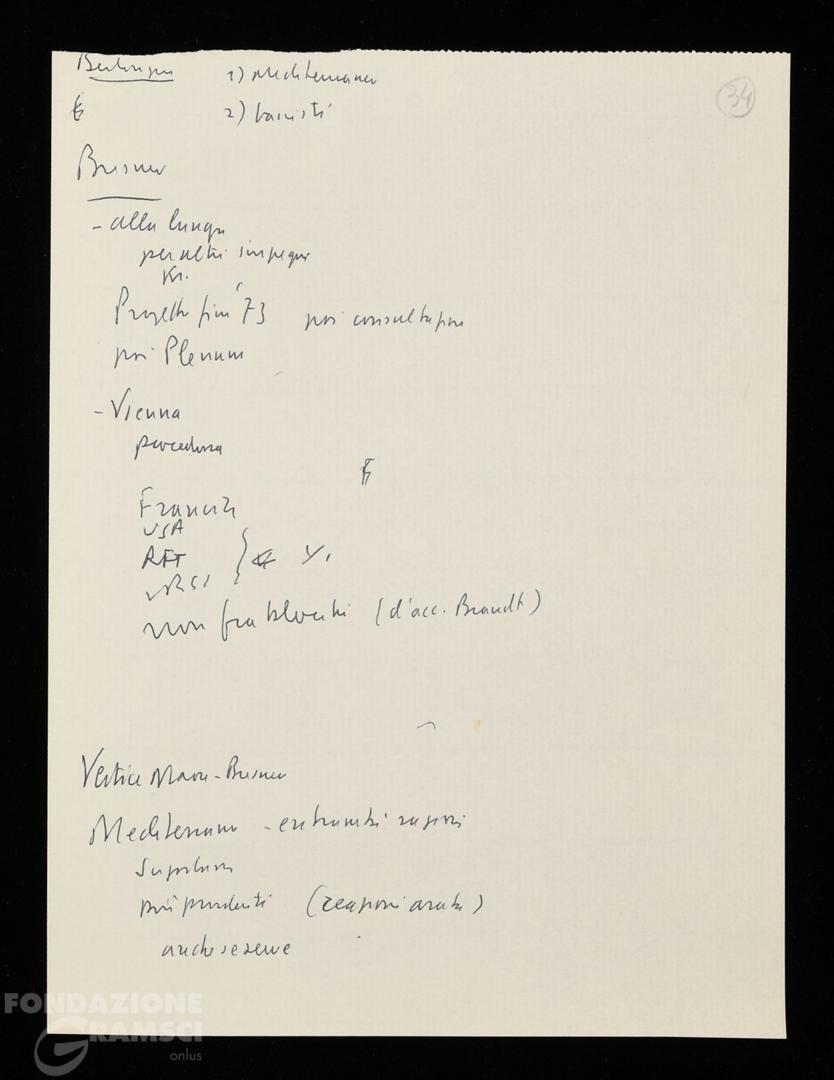 Berlinguer 1) Mediterraneo
2)
34
Bresnev
- alla lunga
per altri impegni
Kr.
Progetto fine '73 poi consultazioni
poi Plenum
- Vienna
procedura
Francia
USA
RFT
URSS
non fra blocchi (d'acc. Brandt)
Vertice Bresnev
Mediterraneo - entrambi ragioni
più prudenti (reazioni arabe)
anche se serve
FONDAZIONE
GRAMSCI
onlus